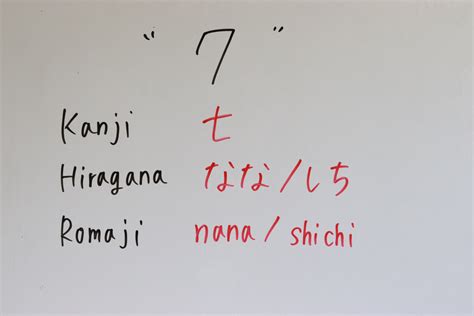 "7"
Kanji 七
Hiragana なな/しち
Romaji nana/shichi